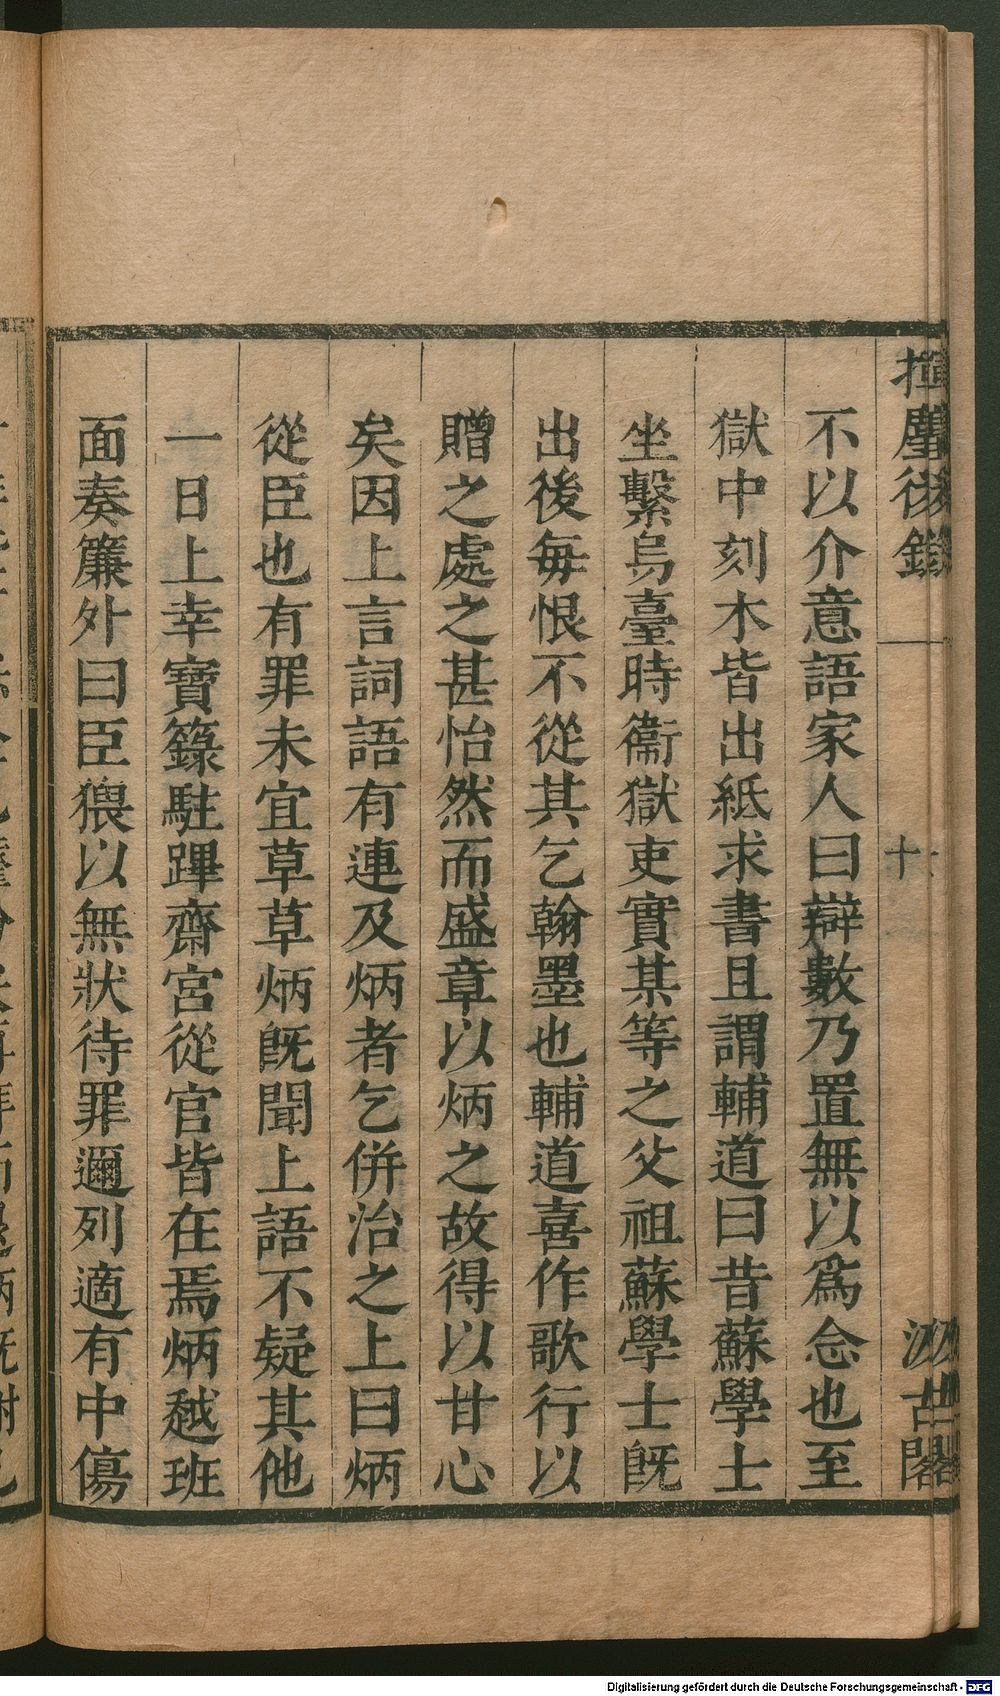 揮麈後錄
十
汲古閣
不以介意語家人曰辯數乃置無以爲念也至
獄中刻木皆出紙求書且謂輔道曰昔蘇學士
坐繫烏臺時衞獄吏實某等之父祖蘇學士既
出後每恨不從其乞翰墨也輔道喜作歌行以
贈之處之甚怡然而盛章以炳之故得以甘心
矣因上言詞語有連及炳者乞併治之上曰炳
從臣也有罪未宜草草炳既聞上語不疑其他
一日上幸寶籙駐蹕齋宮從官皆在焉炳越班
面奏簾外曰臣猥以無狀待罪邇列適有中傷
Digitalisierung gefördert durch die Deutsche Forschungsgemeinschaft - DFG